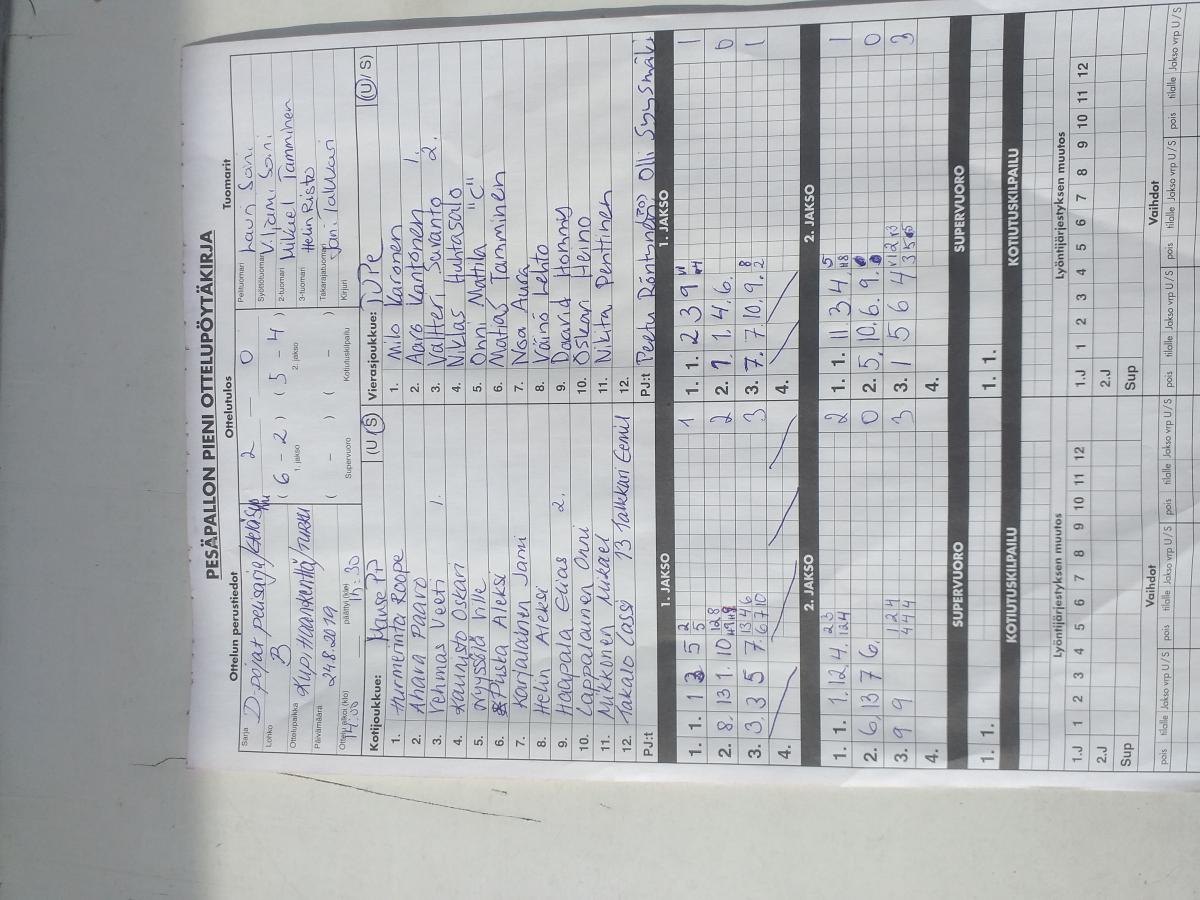 PESÄPALLON PIENI OTTELUPÖYTÄKIRJA
Ottelun perustiedot
Sarja D-pojat perussarja/
Lohko B
Ottelupaikka Kupittaankenttä/Turku
Päivämäärä 24.8.2019
Ottelu alkoi (klo) 14:00 päättyi (klo) 15:30
Ottelutulos
2 — 0
( 6 - 2 ) ( 5 - 4 )
1. jakso 2. jakso
( - ) ( - )
Supervuoro Kotiutuskilpailu
Tuomarit
Pelituomari Lauri Soini
Syöttötuomari Viljami Soini
2-tuomari Mikael Tamminen
3-tuomari Helin Risto
Takarajatuomari
Kirjuri Jani Talkkari
Kotijoukkue: Manse PP (U/S)
1. Nurmerinta Roope
2. Ahana Paavo
3. Vehmas Veeti 1.
4. Kaunisto Oskari
5. Nyyssölä Ville
6. Pusta Aleksi
7. Karjalainen Jami
8. Helin Aleksi
9. Haapala Elias 2.
10. Lappalainen Onni
11. Mikkonen Mikael
12. Takalo Cassi 13 Talkkari Eemil
PJ:t
Vierasjoukkue: TuPe (U/S)
1. Milo Karonen
2. Aaro Kantonen 1.
3. Valtteri Suvanto 2.
4. Niklas Huhtasalo
5. Onni Mattila "C"
6. Matias Tamminen
7. Noa Aura
8. Väinö Lehto
9. Daavid Hommy
10. Oskari Heino
11. Nikita Penttinen
12.
PJ:t Peetu Röntynen, Olli Syysmäki
1. JAKSO 1. JAKSO
1. 1. 5 2 5 1
1. 1. 2 3 9 1
2. 8. 13 1. 10 2
2. 1. 4. 6. 0
3. 3. 3 5 7. 1 3 4 6 6 7 10 3
3. 7. 7. 10. 9. 8 2 1
4.
4.
2. JAKSO 2. JAKSO
1. 1. 1. 12 4. 2 3 2
1. 1. 11 3 4. 5 1
2. 6. 13 7 6. 0
2. 5. 10. 6. 9. 0
3. 9 9 1 2 4 4 4 4 3
3. 1 5 6 4 3
4.
4.
SUPERVUORO SUPERVUORO
1. 1. 1. 1.
KOTIUTUSKILPAILU KOTIUTUSKILPAILU
Lyöntijärjestyksen muutos Lyöntijärjestyksen muutos
1.J 1 2 3 4 5 6 7 8 9 10 11 12 1.J 1 2 3 4 5 6 7 8 9 10 11 12
2.J 2.J
Sup Sup
Vaihdot Vaihdot
pois tilalle Jakso vrp U/S pois tilalle Jakso vrp U/S pois tilalle Jakso vrp U/S pois tilalle Jakso vrp U/S pois tilalle Jakso vrp U/S pois tilalle Jakso vrp U/S